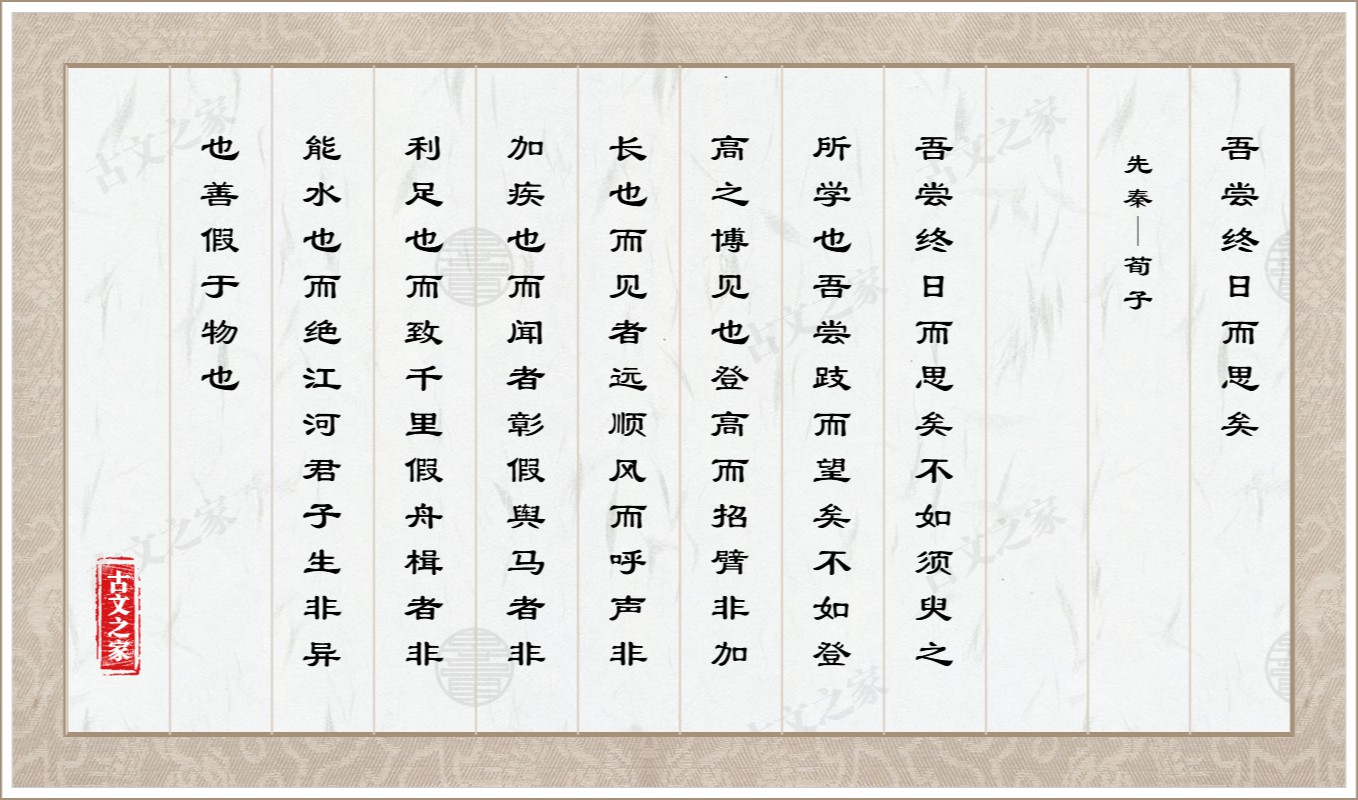 吾尝终日而思矣
先秦—荀子
吾尝终日而思矣不如须臾之
所学也吾尝跂而望矣不如登
高之博见也登高而招臂非加
长也而见者远顺风而呼声非
加疾也而闻者彰假舆马者非
利足也而致千里假舟楫者非
能水也而绝江河君子生非异
也善假于物也
古文之家
古文之家
古文之家
古文之家
古文之家
古文之家
古文之家